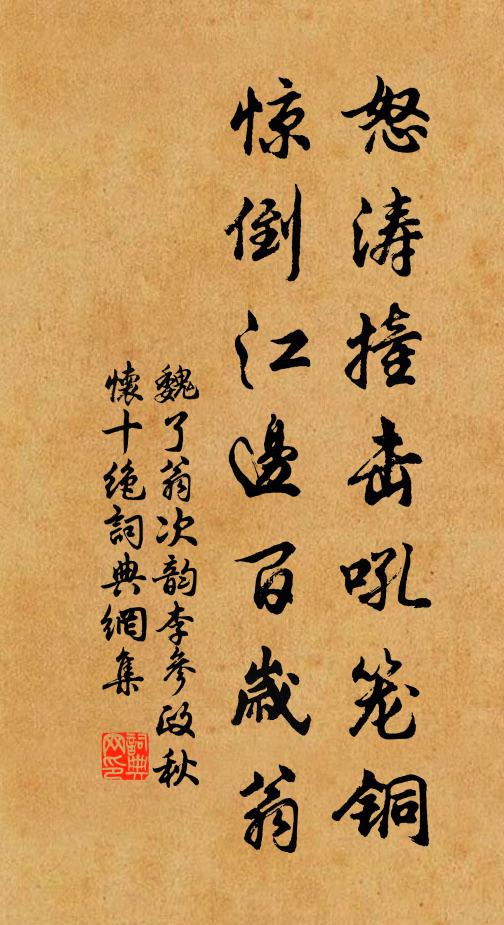 怒涛撞击吼笼铜
惊倒江邊百歲翁
魏了翁次韵李參政秋
懷十绝詞典網集
詞典
网印